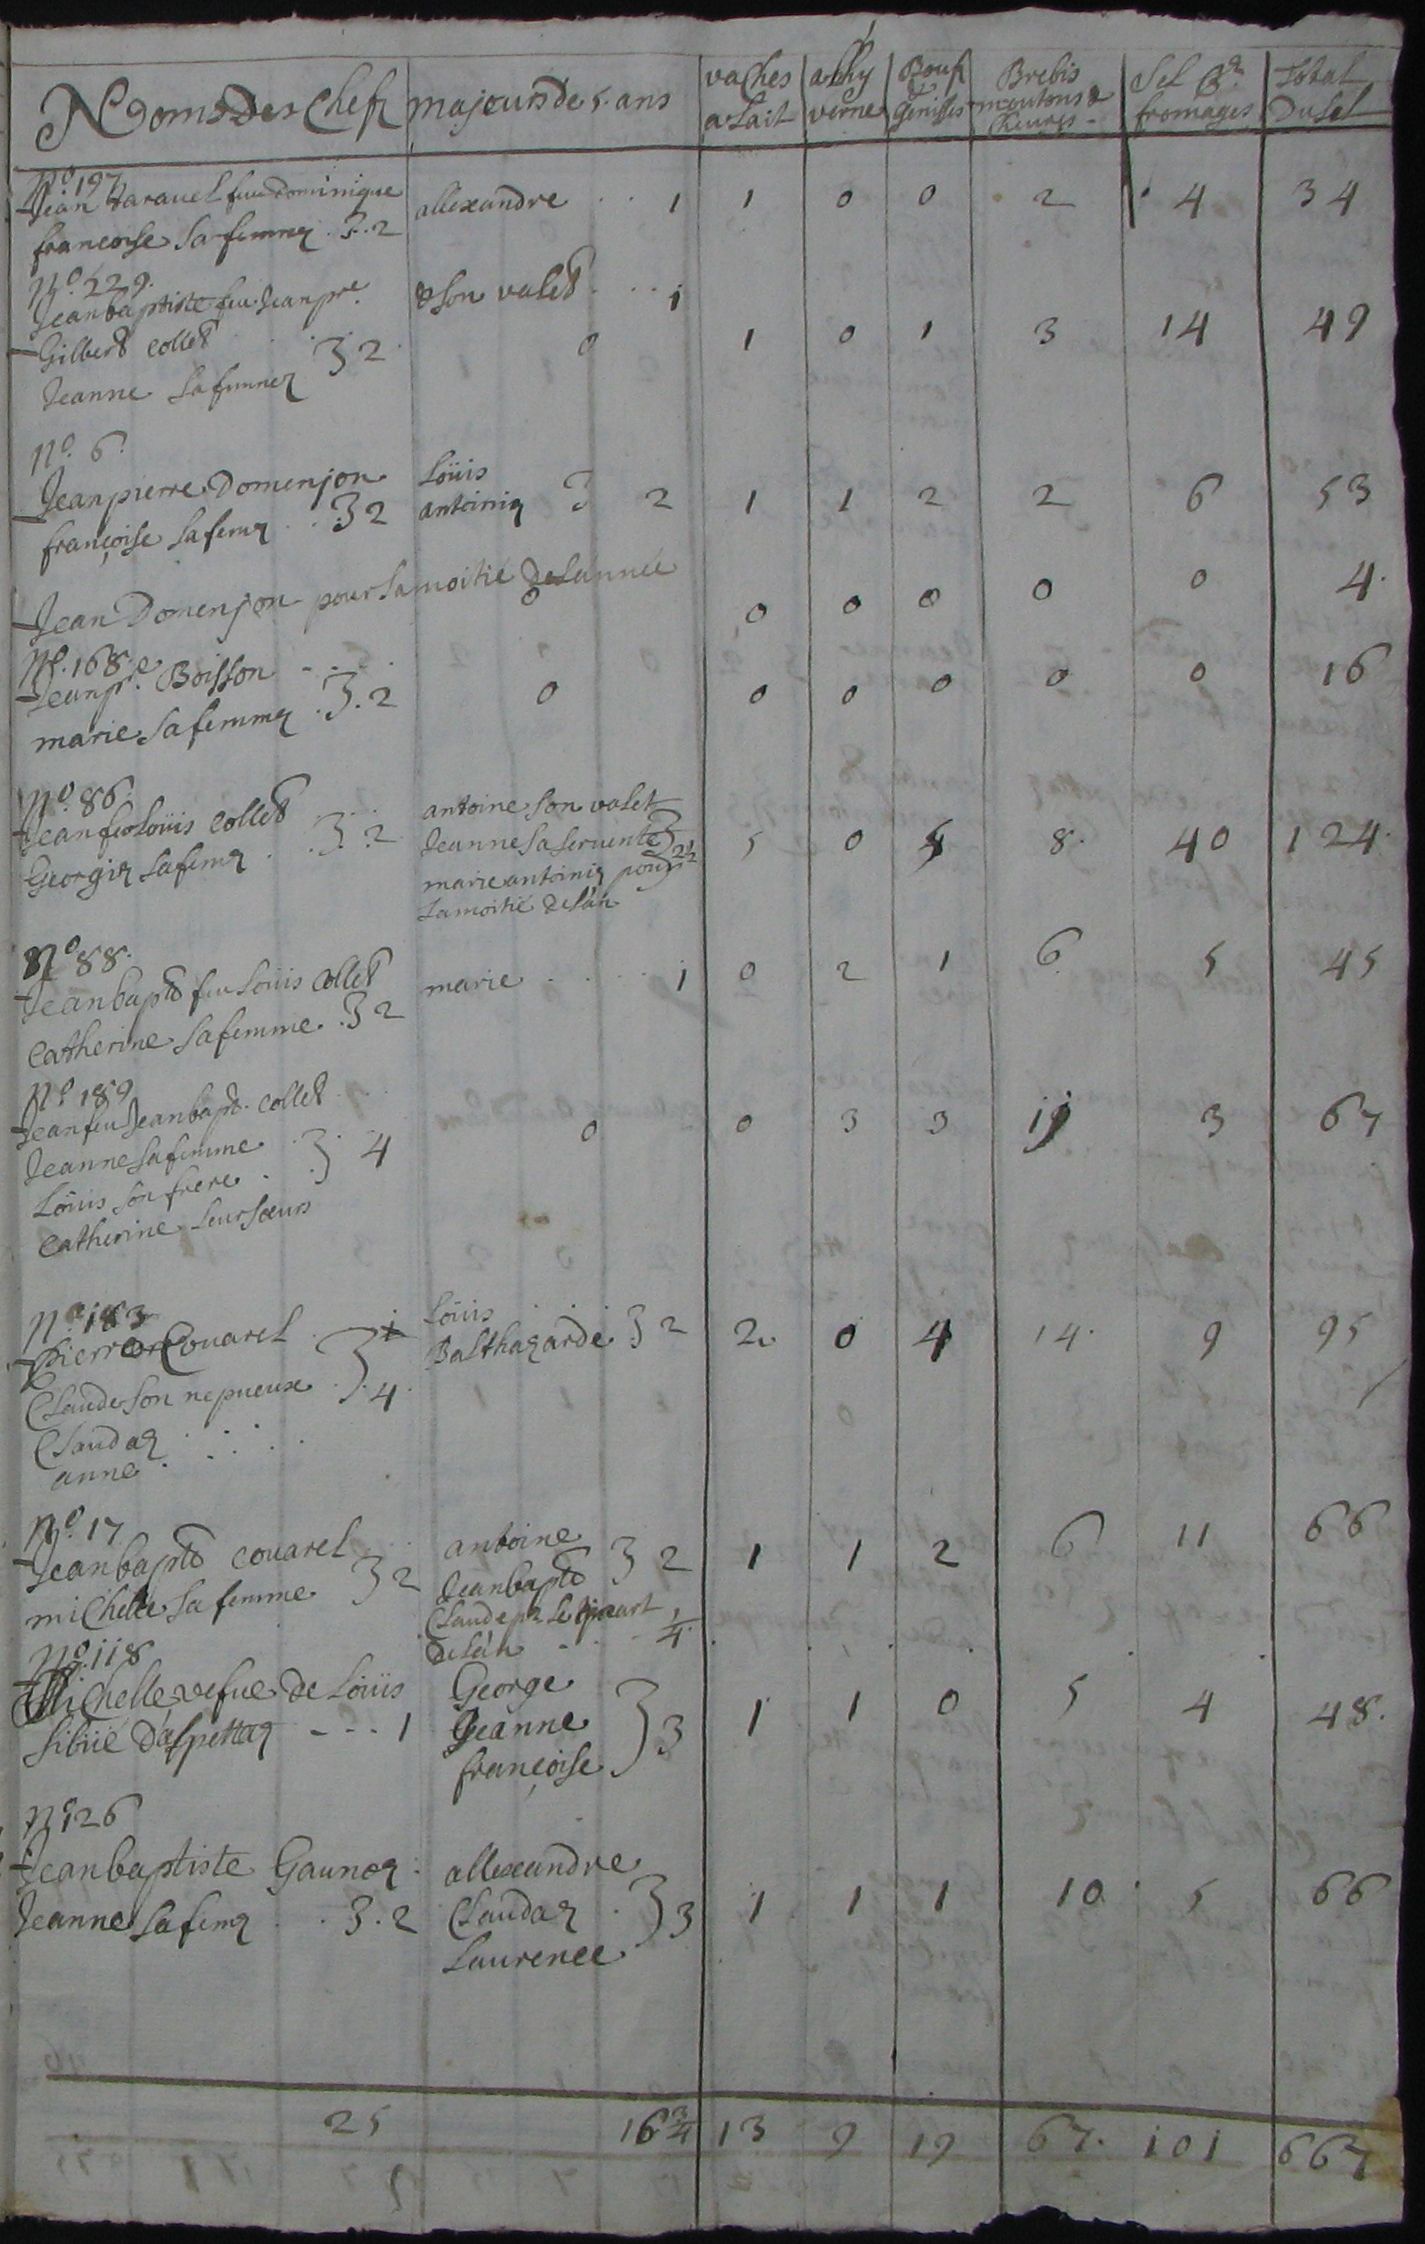 Noms des Chefz majeurs de 5. ans vaches a Lait alhyverne Boeufz & Genisses Brebis moutons & chevres Sel pr. fromages Total Du Sel
No. 197
Jean Taravel feu Dominique allexandre . . 1 1 0 0 2 4 34
francoise Sa femme . 3 . 2
No. 229. & Son valet . . . 1
Jean baptiste feu Jean pre.
Gilbert Collet 3 2 0 1 0 1 3 14 49
Jeanne Sa femme
No. 6.
Jean pierre Domenjon Loüis
françoise Sa feme . . 3 2 antoinia 3 2 1 1 2 2 6 53
Jean Domenjon pour La moitié de L'année 0 0 0 0 0 0 4.
No. 168.
Jean pre. Boisson
marie Sa femme . 3 . 2 0 0 0 0 0 0 16
No. 86. antoine Son valet
Jean feu Loüis Collet Jeanne Sa Servente
Georgia Sa feme . . 3 . 2 marie antoinia pour 2½ 5 0 4 8. 40 124.
La moitié de L'an
No. 88.
Jean bapte feu Loüis Collet marie . . . . 1 0 2 1 6 5 45
Catherine Sa femme . 3 2
No. 189
Jean feu Jean bapt. Collet
Jeanne Sa femme 3 4 0 0 3 3 11 3 67
Loüis Son frere . .
Catherine Leur Soeurs
No. 183 Loüis
Pierre Couarel 4 Balthazarde 3 2 2 0 4 14. 9 95
Claude Son nepueux . 0
Claudaz
anne
No. 17 antoine
Jean bapte Couarel Jean bapte 3 2 1 1 2 6 11 66
miChelle Sa femme 3 2 Claude pr. Le quart
de L'an . . . ¼
No. 118
MiChelle vefue de Loüis George
Sibüé D'aspettaz - - - 1 Jeanne 3 3 1 1 0 5 4 48.
françoise
No 126
Jean baptiste Gaunoz allexandre
Jeanne Sa feme . . 3 . 2 Claudaz . 3 3 1 1 1 10. 5 66
Laurence
25 16¾ 13 9 19 67. 101 667